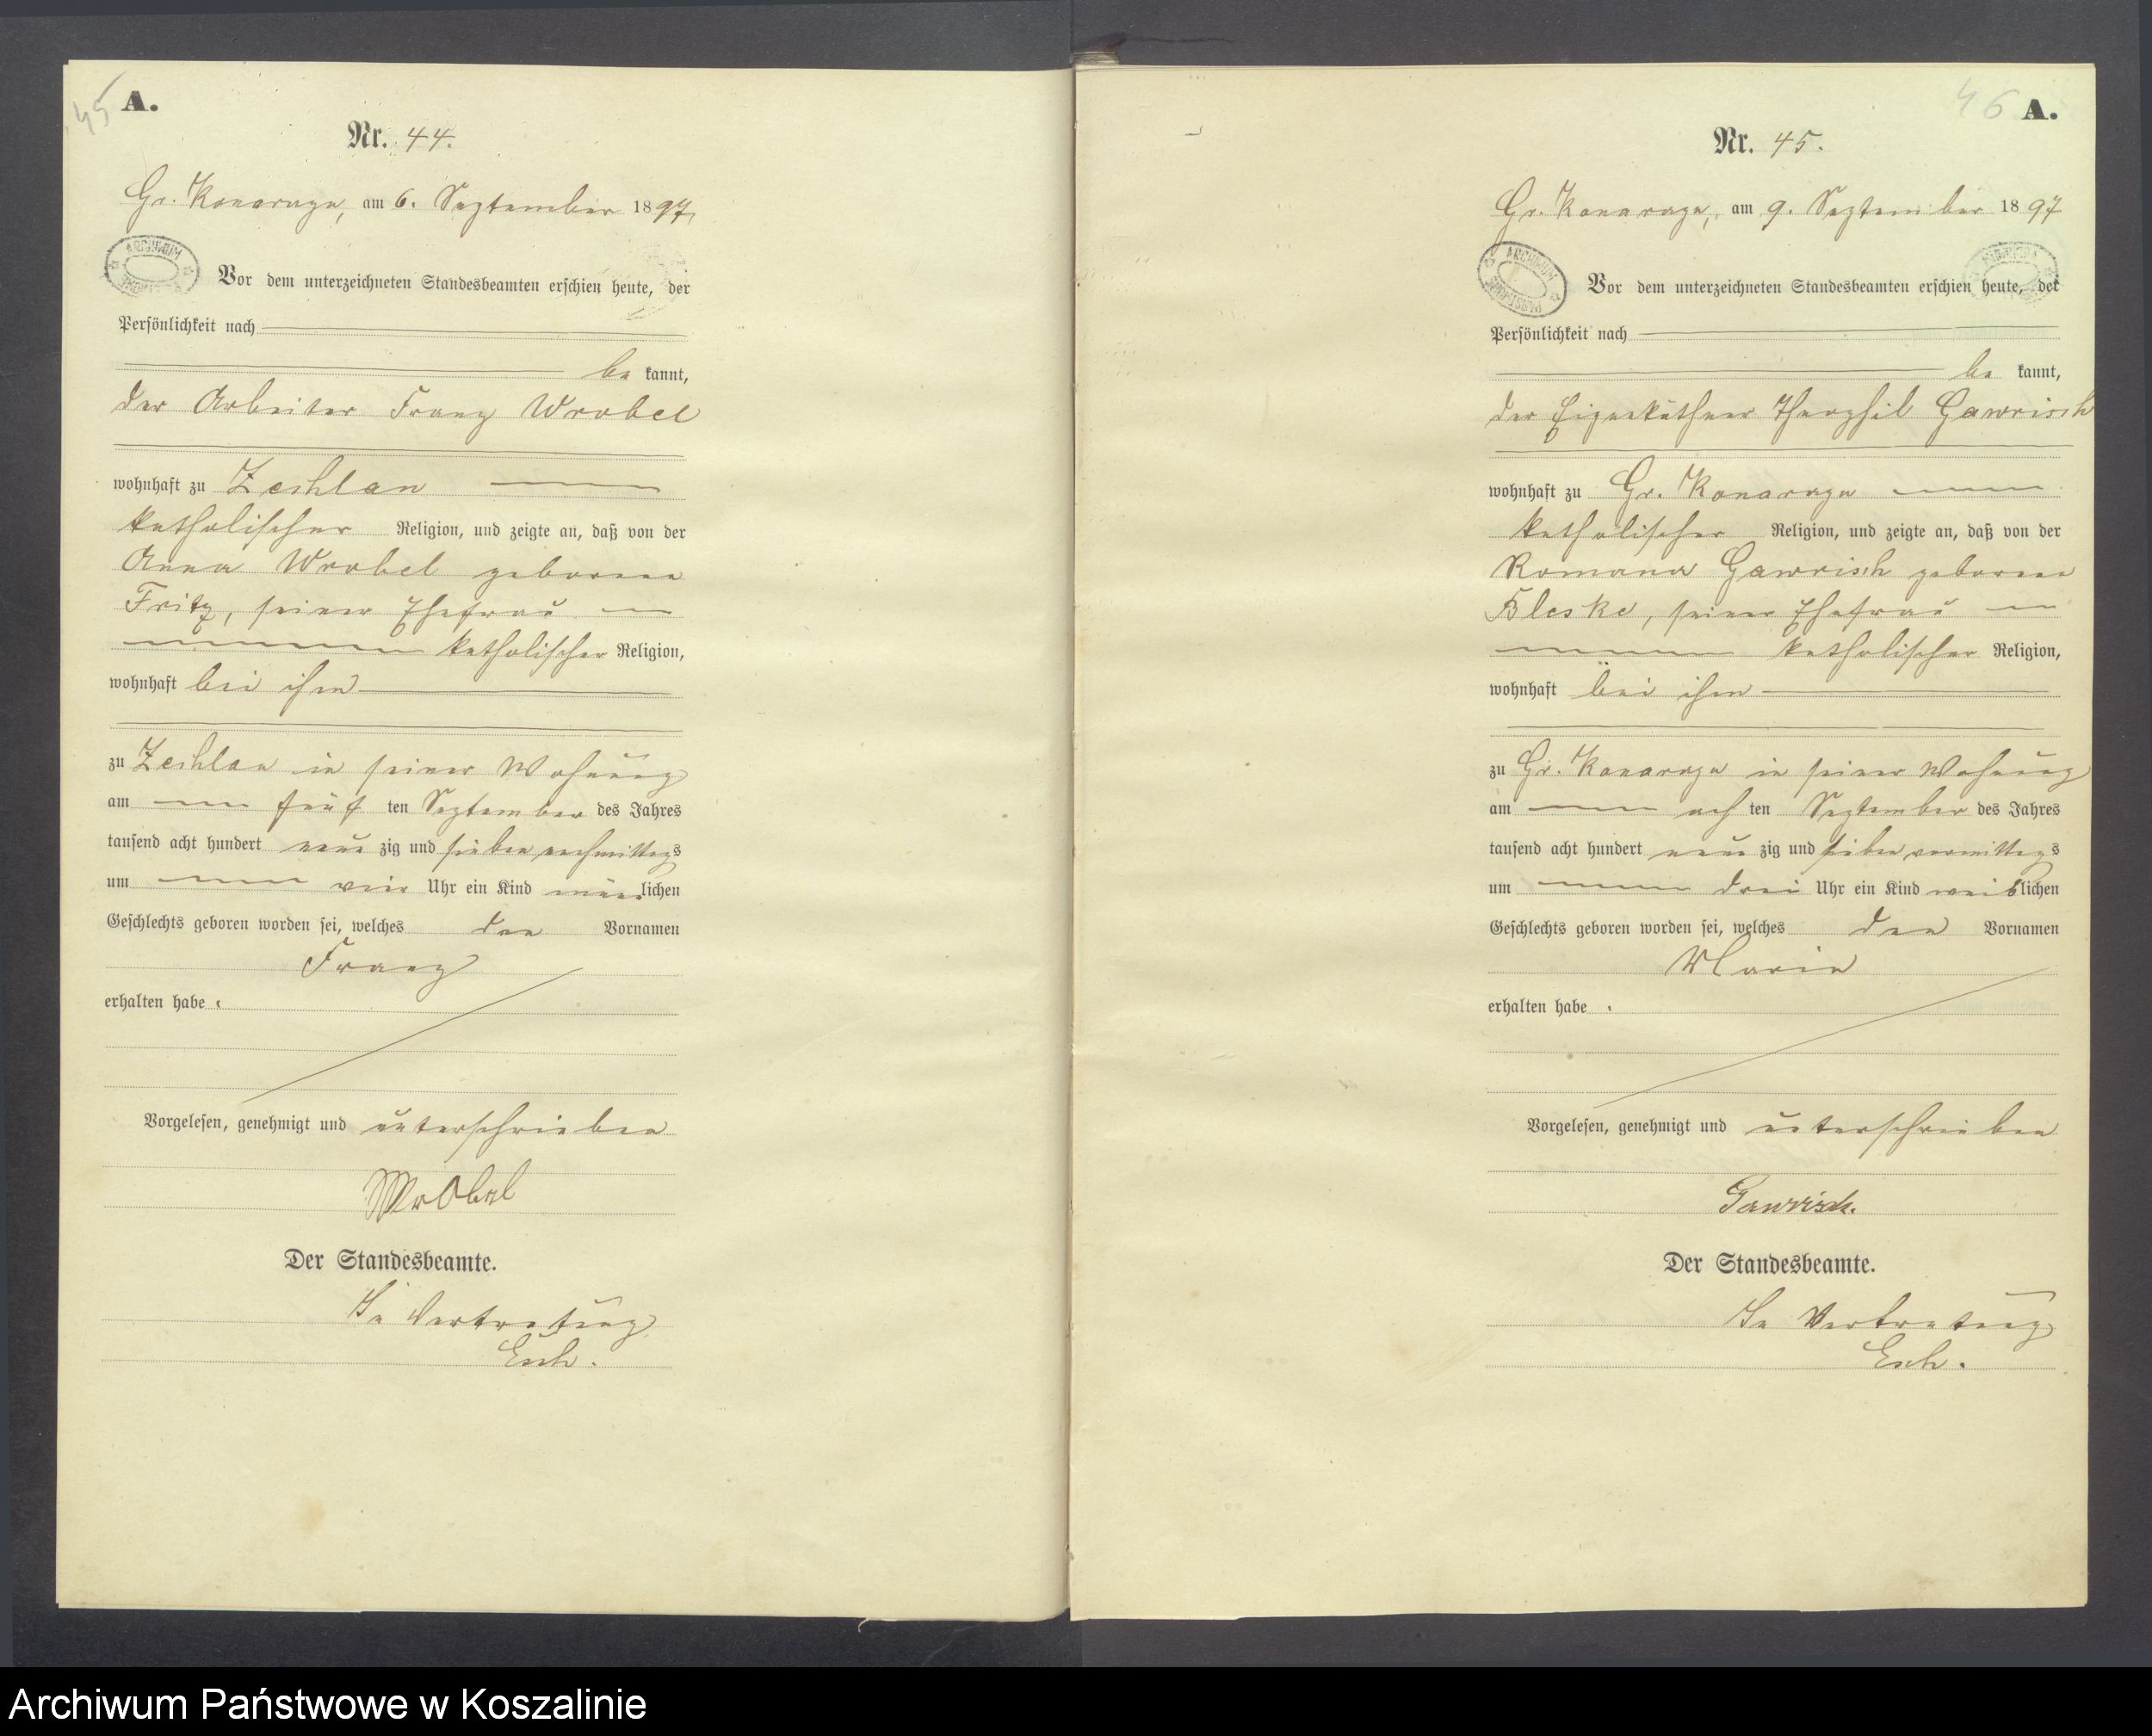 45
A.
Nr. 44.
Gr. Konarzyn, am 6. September 1897
ARCHIWUM
Vor dem unterzeichneten Standesbeamten erschien heute, der
Persönlichkeit nach
be kannt,
der Arbeiter Franz Wrobel
wohnhaft zu Zechlau
katholischer Religion, und zeigte an, daß von der
Anna Wrobel geborene
Fritz, seiner Ehefrau
katholischer Religion,
wohnhaft bei ihm
zu Zechlau in seiner Wohnung
am fünf ten September des Jahres
tausend acht hundert neun zig und sieben nachmittags
um vier Uhr ein Kind männlichen
Geschlechts geboren worden sei, welches den Vornamen
Franz
erhalten habe.
Vorgelesen, genehmigt und unterschrieben
Wrobel
Der Standesbeamte.
In Vertretung
Esch.
46 A.
Nr. 45.
Gr. Konarzyn, am 9. September 1897
ARCHIWUM
Vor dem unterzeichneten Standesbeamten erschien heute, der
Persönlichkeit nach
be kannt,
der Eigenkäthner Theophil Gawrisch
wohnhaft zu Gr. Konarzyn
katholischer Religion, und zeigte an, daß von der
Romana Gawrisch geborene
Bleske, seiner Ehefrau
katholischer Religion,
wohnhaft bei ihm
zu Gr. Konarzyn in seiner Wohnung
am ach ten September des Jahres
tausend acht hundert neun zig und sieben vormittags
um drei Uhr ein Kind weiblichen
Geschlechts geboren worden sei, welches den Vornamen
Maria
erhalten habe.
Vorgelesen, genehmigt und unterschrieben
Gawrisch.
Der Standesbeamte.
In Vertretung
Esch.
Archiwum Państwowe w Koszalinie